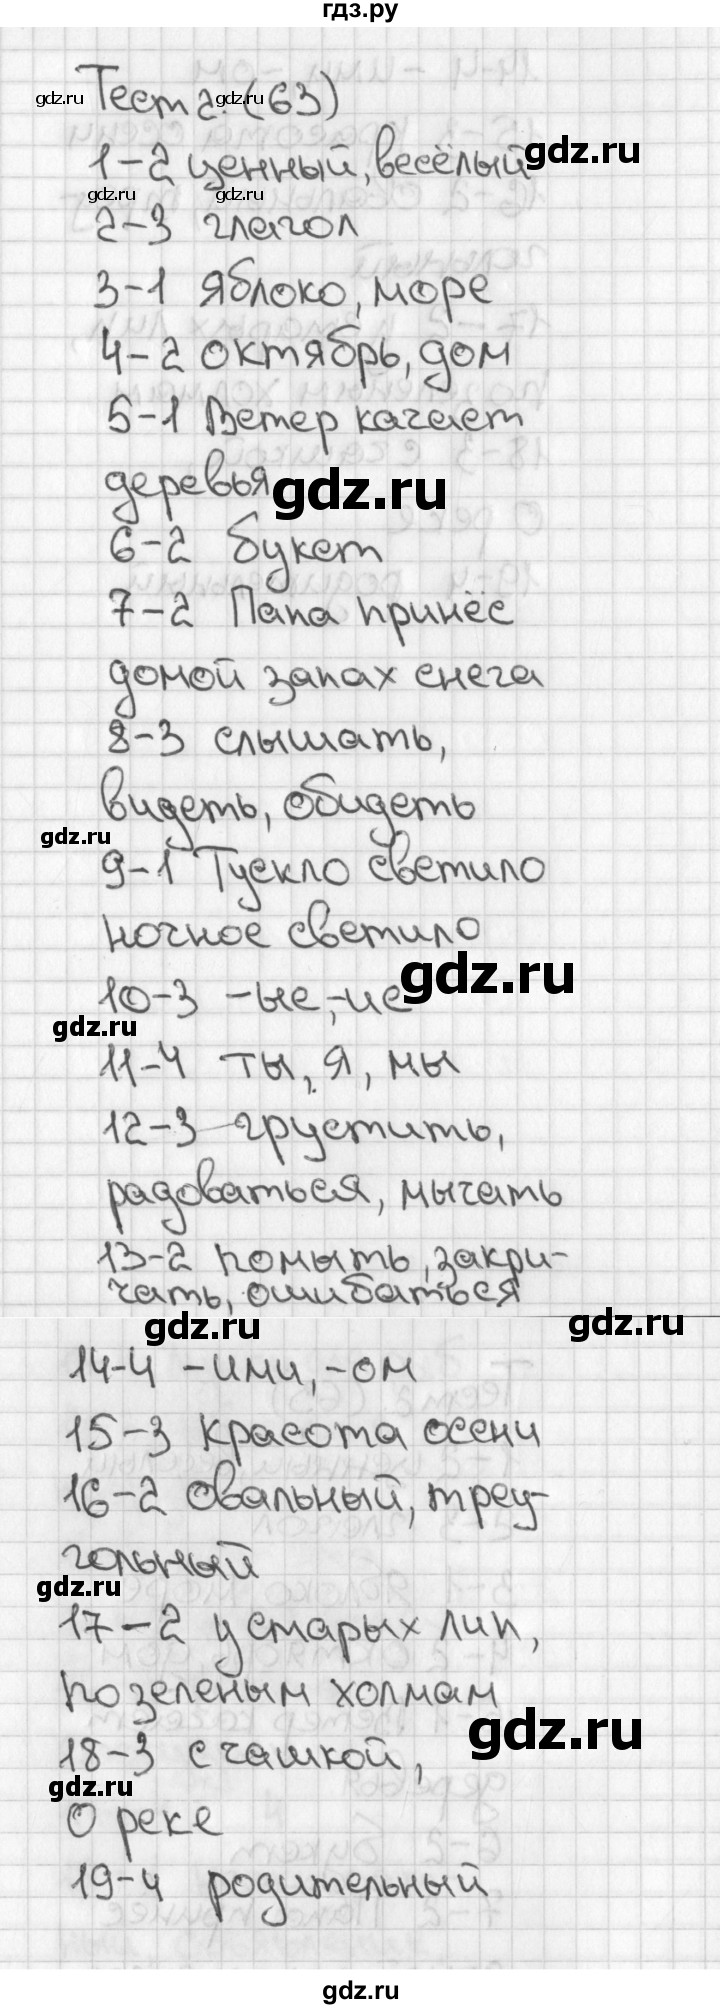 гдз.ру
Тест 2. (63)
gdz.ru gdz.ru
1-2 ценный, весёлый
gdz.ru
gdz.ru gdz.ru
2-3 глагол
3-1 яблоко, море
4-2 октябрь, дом
5-1 Ветер качает
деревья
gdz.ru
6-2 букет
7-2 Папа принёс
домой запах снега
8-3 слышать,
видеть, обидеть
gdz.ru
9-1 Тускло светило
ночное светило
gdz.ru
10-3 -ые,-ие
gdz.ru
11-4 ты, я, мы
12-3 грустить,
радоваться, мычать
13-2 помыть, закри-
чать, ошибаться
gdz.ru gdz.ru
14-4 -ими, -ом
15-3 красота осени
16-2 овальный, треу-
гольный
gdz.ru
17-2 у старых лип,
по зеленым холмам
gdz.ru
18-3 с чашкой,
gdz.ru
О реке
19-4 родительный
gdz.ru